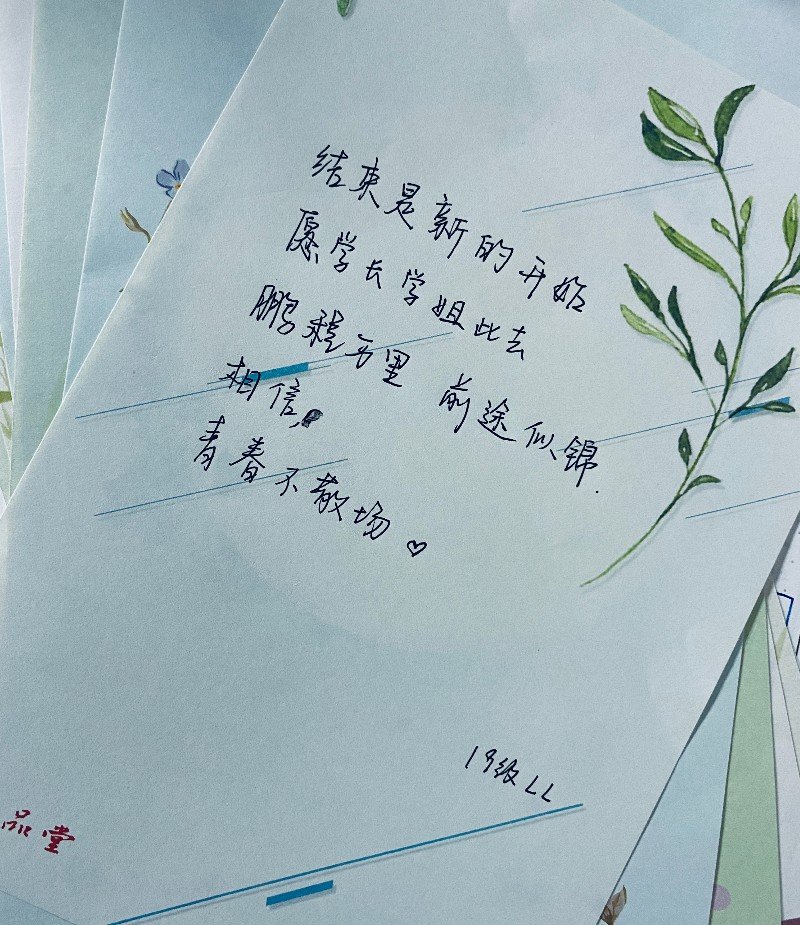 结束是新的开始
愿学长学姐此去
鹏程万里 前途似锦.
相信,
青春不散场。♡
19级 LL
品堂